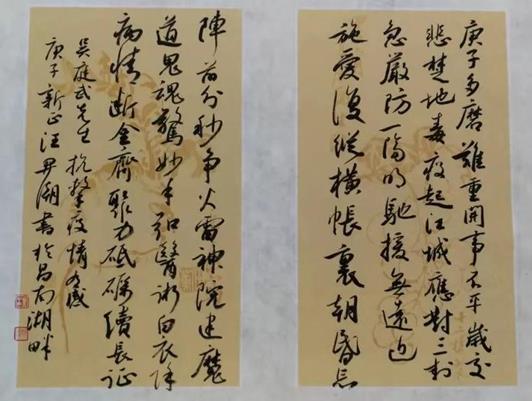 庚子多磨難重開事不平歲交
悲楚地毒疫起江城應對三封
急嚴防一隔明馳援無遠近
施愛復縱橫帳裏朝昏忘
陣前分秒争火雷神院建魔
道鬼魂驚妙手知醫術白衣降
病情断金齊聚力砥礪續長征
吴庭武先生抗擊疫情有感
庚子新正汪書於昌南湖畔